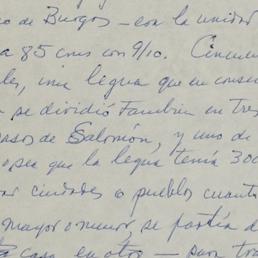 o de Burgos - con la unidad
a 85 cms con 9/10. Circun
les, una legua que en conse
se dividió También en Tres
asos de Salomón, y uno de
opea que la legua tenía 300
ar ciudades o pueblos cuant
mayor o menor, se partía d
casa en otros - para tra